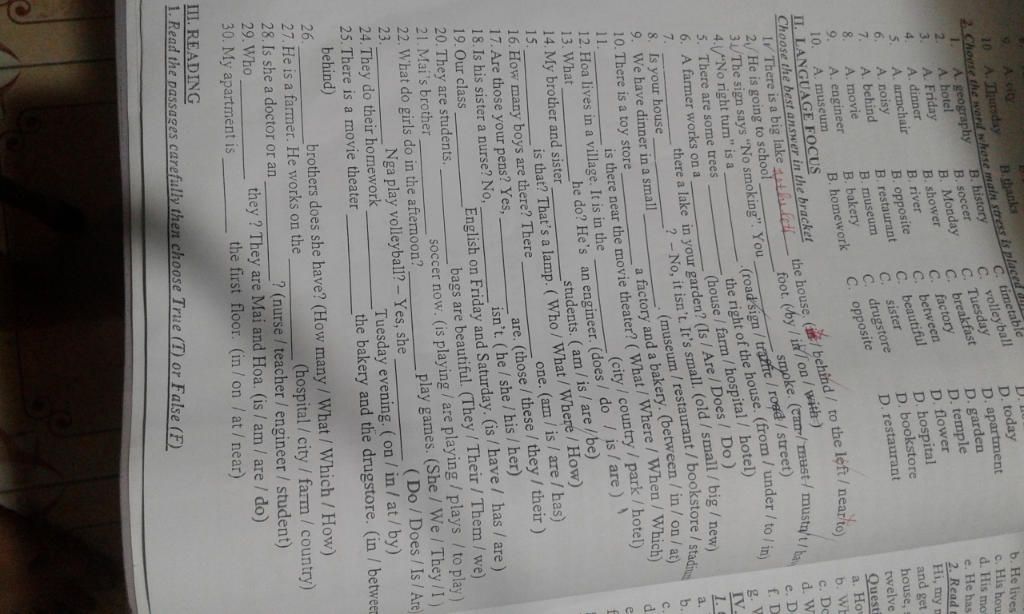 9. A. city B. thanks
10 A. Thursday C. timetable D. today
2. Choose the word whose main stress is placed
1. A. geography B. history C. volleyball D. apartment
2. A. hotel B. soccer C. Tuesday D. garden
3. A. Friday B. Monday C. breakfast D. temple
4. A. dinner B. shower C. factory D. flower
5. A. armchair B. river C. between D. hospital
6. A. noisy B. opposite C. beautiful D. bookstore
7. A. behind B. restaurant C. sister D. restaurant
8. A. movie B. museum C. drugstore
9. A. engineer B. bakery C. opposite
10. A. museum B. homework
II. LANGUAGE FOCUS
Choose the best answer in the bracket
1. There is a big lake to the left the house. (in / behind / to the left / near to)
2. He is going to school ______ foot. (by / in / on / with)
3. The sign says "No smoking". You ______ smoke. (can / must / mustn't /
4. "No right turn" is a ______. (road sign / traffic / road / street)
5. There are some trees ______ the right of the house. (from / under / to / in)
6. A farmer works on a ______ (house / farm / hospital / hotel)
7. ______ there a lake in your garden? (Is / Are / Does / Do)
8. Is your house ______? – No, it isn't. It's small. (old / small / big / new)
9. We have dinner in a small ______. (museum / restaurant / bookstore / stadium
10. There is a toy store ______ a factory and a bakery. (between / in / on / at)
11. ______ is there near the movie theater? (What / Where / When / Which)
12 Hoa lives in a village. It is in the ______ (city / country / park / hotel)
13 What ______ he do? He's an engineer. (does / do / is / are)
14. My brother and sister ______ students. (am / is / are / be)
15. ______ is that? That's a lamp. (Who / What / Where / How)
16 How many boys are there? There ______ one. (am / is / are / has)
17. Are those your pens? Yes, ______ are. (those / these / they / their)
18. Is his sister a nurse? No, ______ isn't. (he / she / his / her)
19 Our class ______ English on Friday and Saturday. (is / have / has / are)
20. They are students. ______ bags are beautiful. (They / Their / Them / we)
21. Mai's brother ______ soccer now. (is playing / are playing / plays / to play)
22. What do girls do in the afternoon? ______ play games. (She / We / They / I)
23. ______ Nga play volleyball? – Yes, she ______ (Do / Does / Is / Are
24. They do their homework ______ Tuesday evening. (on / in / at / by)
25 There is a movie theater ______ the bakery and the drugstore. (in / between
behind)
26. ______ brothers does she have? (How many / What / Which / How)
27. He is a farmer. He works on the ______ (hospital / city / farm / country)
28. Is she a doctor or an ______? (nurse / teacher / engineer / student)
29. Who ______ they? They are Mai and Hoa. (is / am / are / do)
30. My apartment is ______ the first floor. (in / on / at / near)
III. READING
1. Read the passages carefully then choose True (T) or False (F)
b. He live
c. His hou
d. His m
e. He has
2. Read
Hi, my
and get
house.
twelve
Ques
a. Ho
b. W
c. D
d. W
e. D
f. D
g. V
IV.
1.
a.
b.
c.
d
e